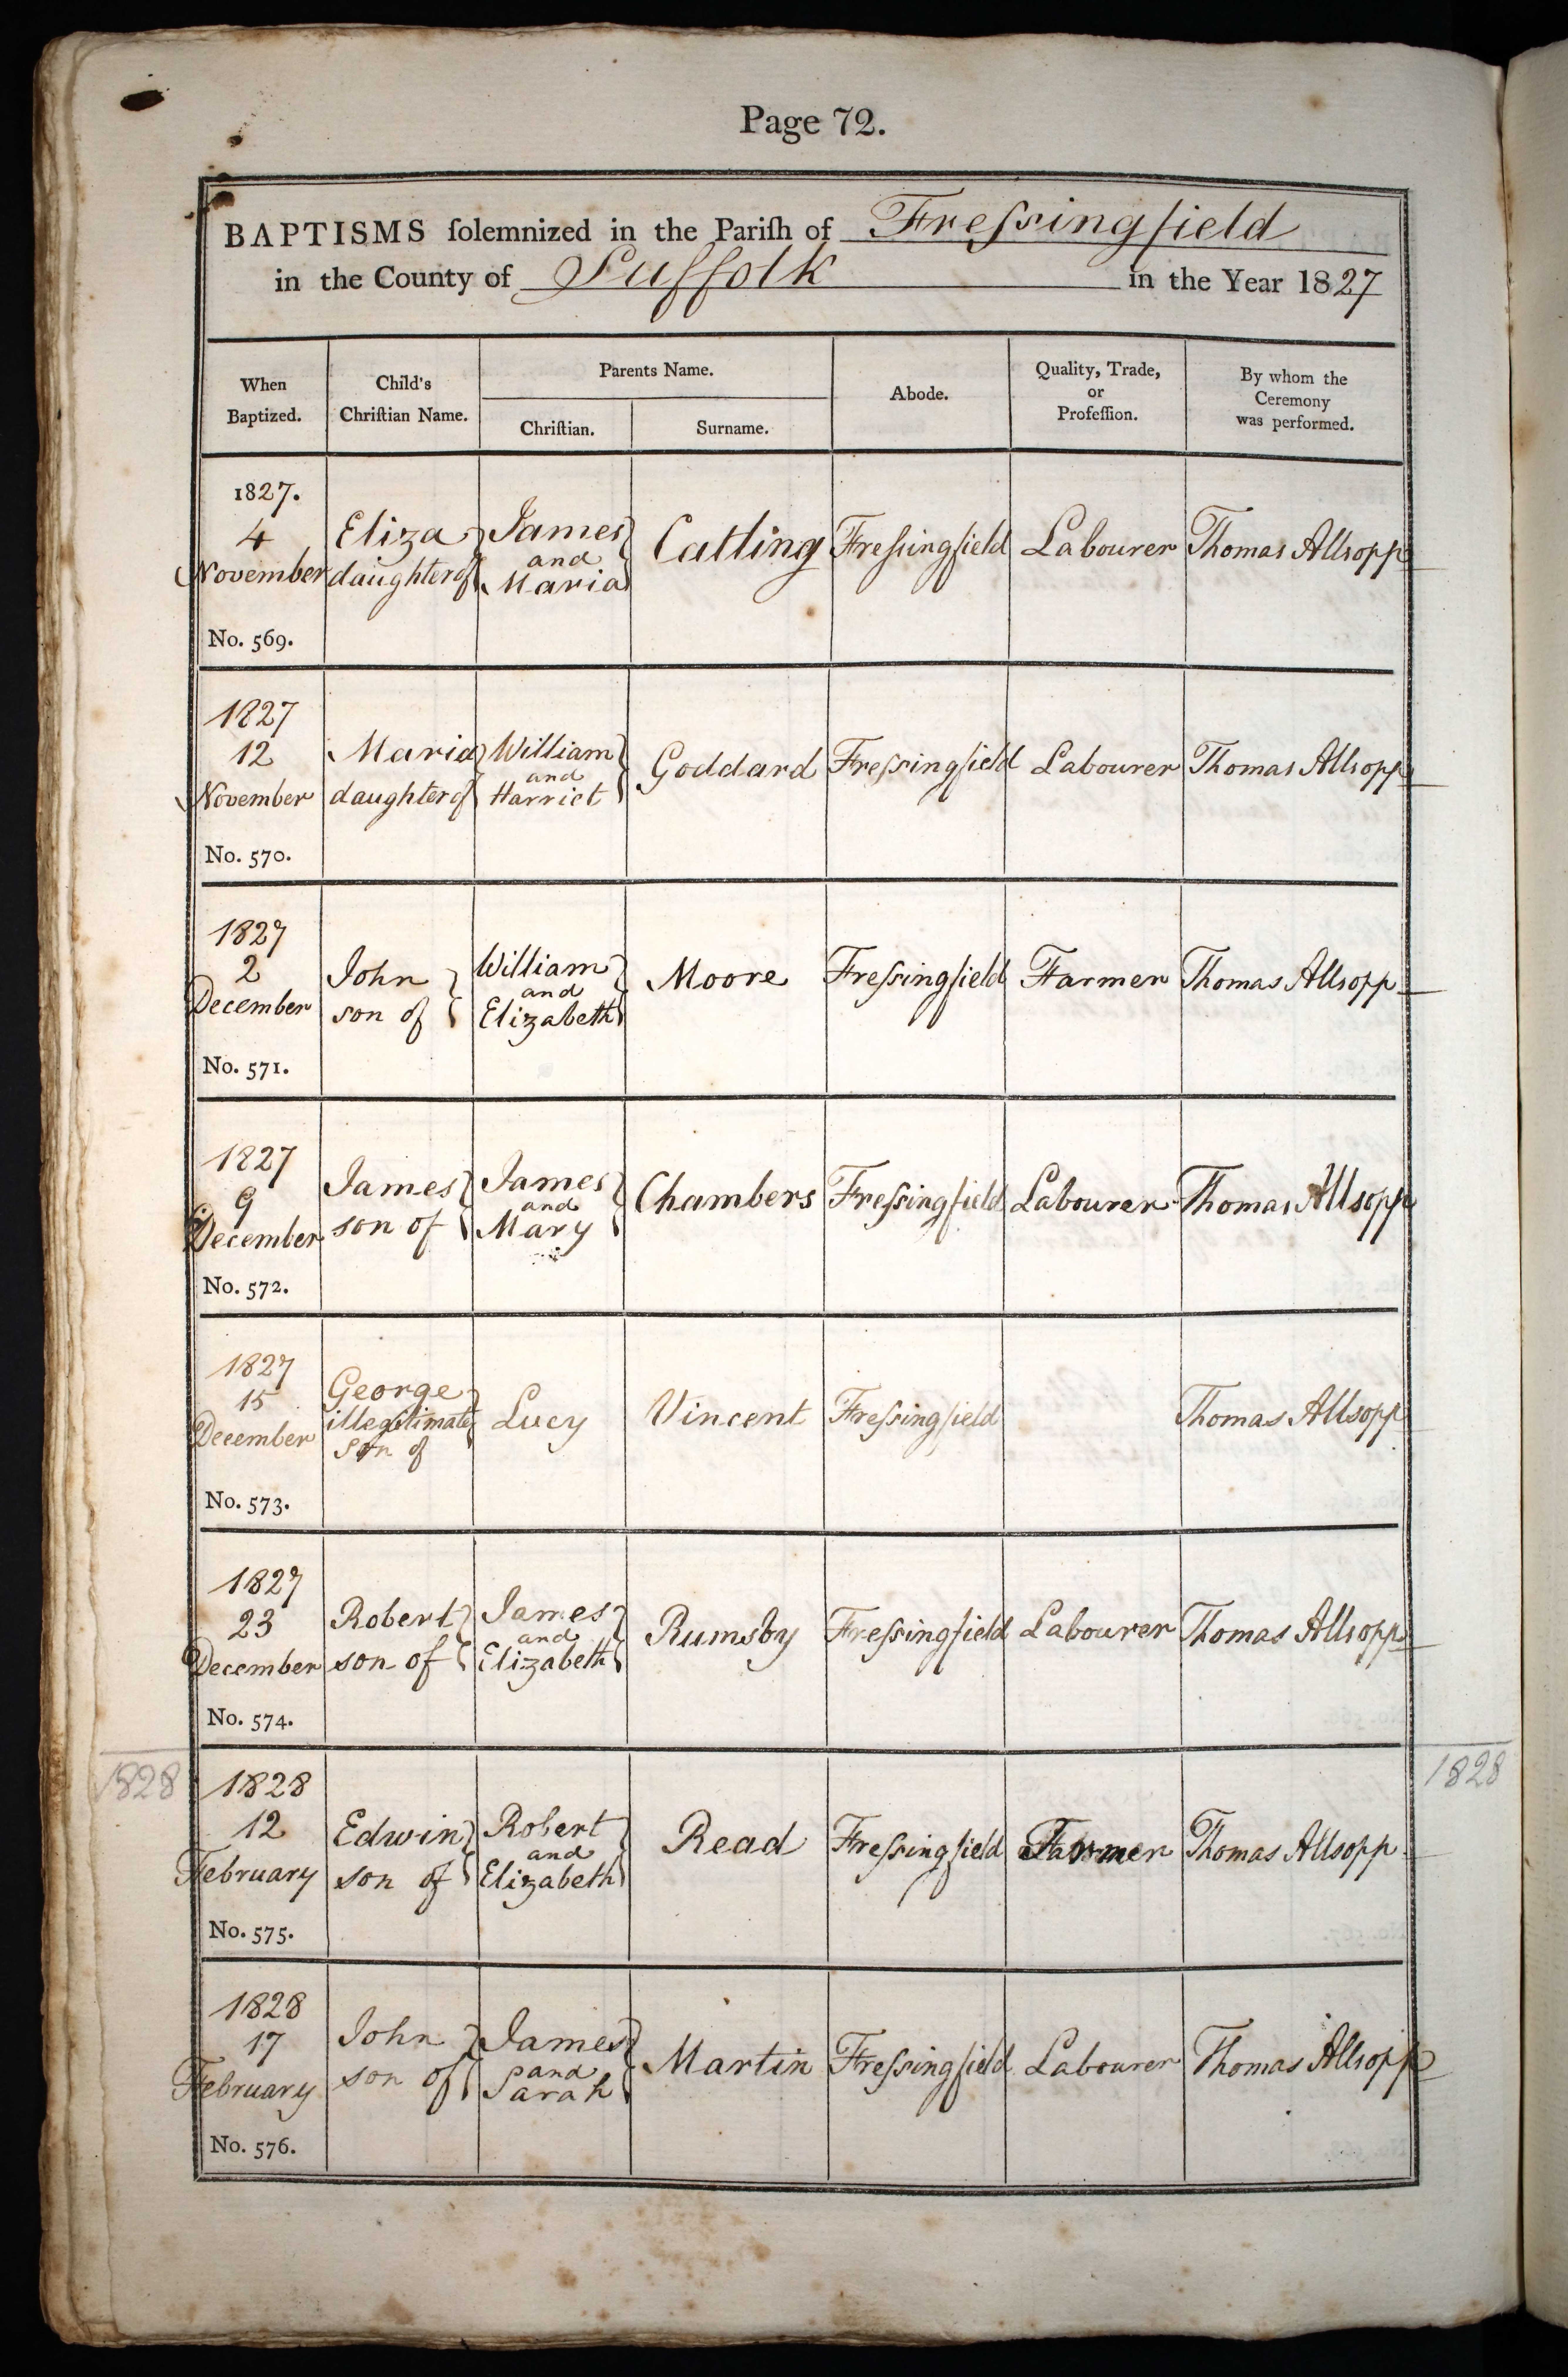 Page 72.
BAPTISMS ſolemnized in the Pariſh of Freſsingfield
in the County of Suffolk in the Year 1827
When Baptized.
Child's Chriſtian Name.
Parents Name.
Chriſtian.
Surname.
Abode.
Quality, Trade, or Profeſſion.
By whom the Ceremony was performed.
1827.
4
November
No. 569.
Eliza
daughter of
James
and
Maria
Catling
Freſsingfield
Labourer
Thomas Allsopp
1827
12
November
No. 570.
Maria
daughter of
William
and
Harriet
Goddard
Freſsingfield
Labourer
Thomas Allsopp
1827
2
December
No. 571.
John
son of
William
and
Elizabeth
Moore
Freſsingfield
Farmer
Thomas Allsopp
1827
9
December
No. 572.
James
son of
James
and
Mary
Chambers
Freſsingfield
Labourer
Thomas Allsopp
1827
15
December
No. 573.
George
illegitimate
son of
Lucy
Vincent
Freſsingfield
Thomas Allsopp
1827
23
December
No. 574.
Robert
son of
James
and
Elizabeth
Rumsby
Freſsingfield
Labourer
Thomas Allsopp
1828
1828
12
February
No. 575.
Edwin
son of
Robert
and
Elizabeth
Read
Freſsingfield
Farmer
Thomas Allsopp
1828
1828
17
February
No. 576.
John
son of
James
and
Sarah
Martin
Freſsingfield
Labourer
Thomas Allsopp